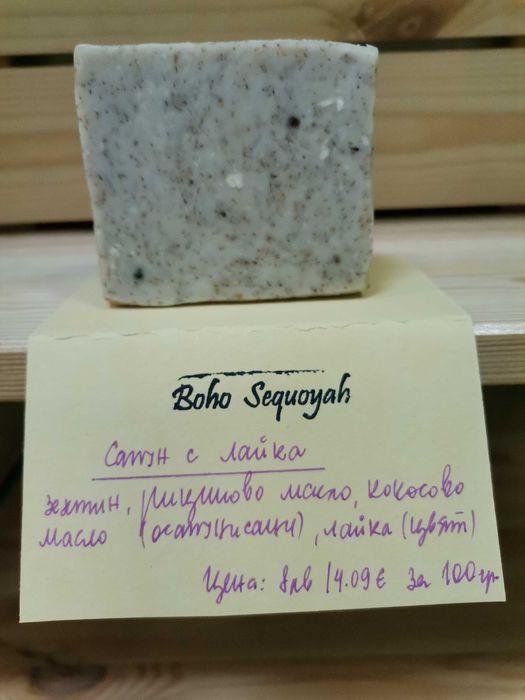 Boho Sequoyah
Сапун с лайка
зехтин, рициново масло, кокосово
масло (осапунисани), лайка (цвят)
Цена: 8лв /4.09€ за 100гр.